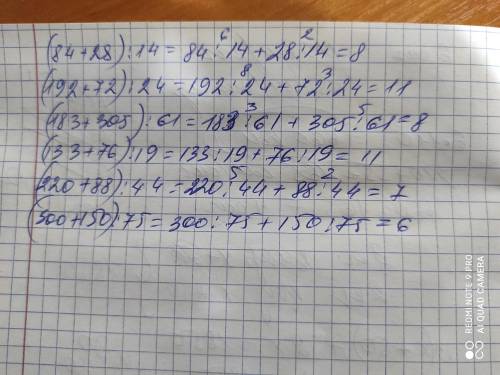 (84+28):14=84:14+28:14=8
6 2
(192+72):24=192:24+72:24=11
8 3
(183+305):61=183:61+305:61=8
3 5
(33+76):19=133:19+76:19=11
(220+88):44=220:44+88:44=7
5 2
(300+150):75=300:75+150:75=6
REDMI NOTE 9 PRO
AI QUAD CAMERA